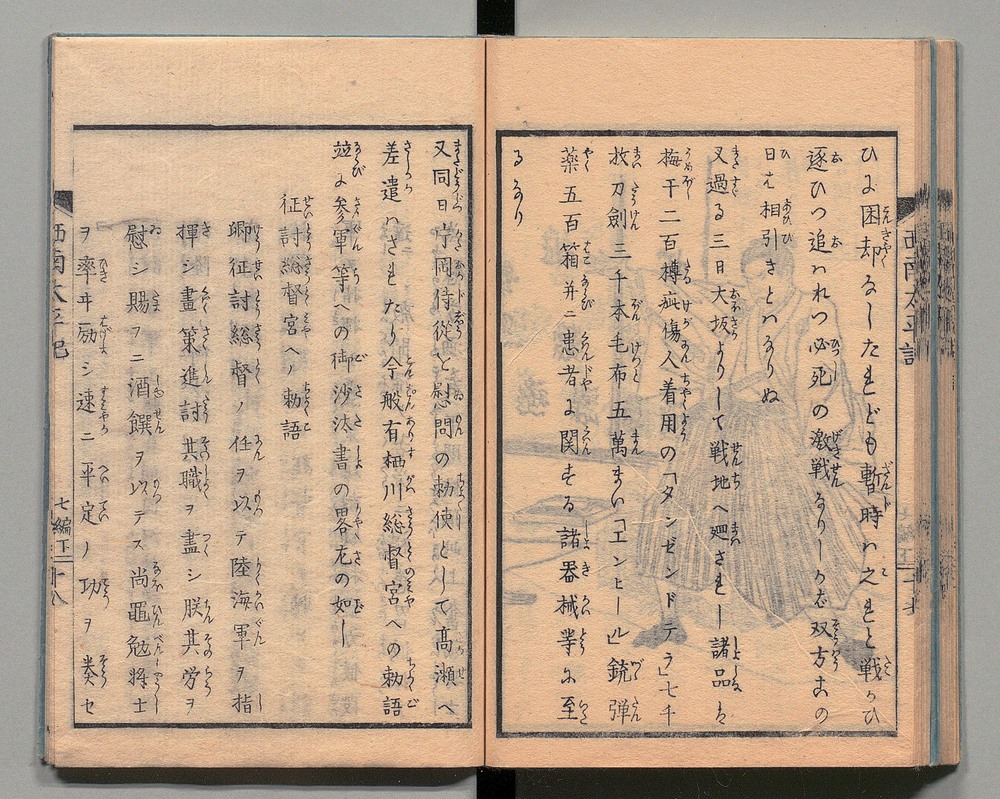 ひに困却なしたれども暫時ハ之れと戦かひ
逐ひつ追ハれつ必死の激戦なりしが双方まの
日も相引きとハなりぬ
又過る三日大坂よりして戦地へ廻されし諸品は
梅干二百樽疵傷人着用の「タンゼンドテラ」七千
枚刀劍三千本毛布五萬まい「エンヒール」銃弾
薬五百箱并ニ患者に関する諸器械等に至
るなり
西南太平記
又同日守岡侍従と慰問の勅使として高瀬へ
差遣ハされたり今般有栖川総督宮への勅語
並に参軍等への御沙汰書の畧左の如し
征討総督宮ヘノ勅語
卿征討総督ノ任ヲ以テ陸海軍ヲ指
揮シ畫策進討其職ヲ盡シ朕其労ヲ
慰シ賜フニ酒饌ヲ以テス尚黽勉将士
ヲ率ヰ励シ速ニ平定ノ功ヲ奏セ
西南太平記
七編下
十八